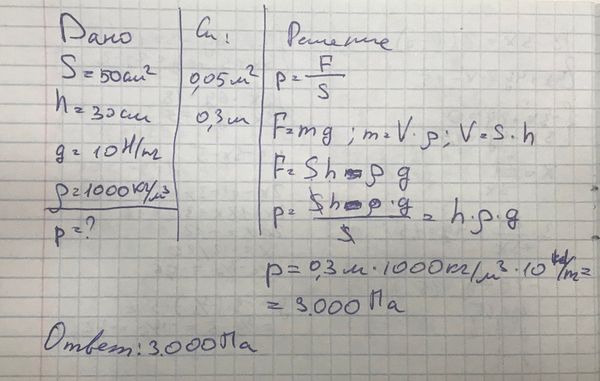 Дано
S = 50см²
h = 30см
g = 10 Н/кг
ρ = 1000 кг/м³
p = ?
Си:
0,05м²
0,3м
Решение
p = F/S
F = mg ; m = V · ρ ; V = S · h
F = S h ρ g
p = S h ρ · g / S = h · ρ · g
p = 0,3 м · 1000 кг/м³ · 10 =
= 3.000 Па
Ответ: 3.000 Па